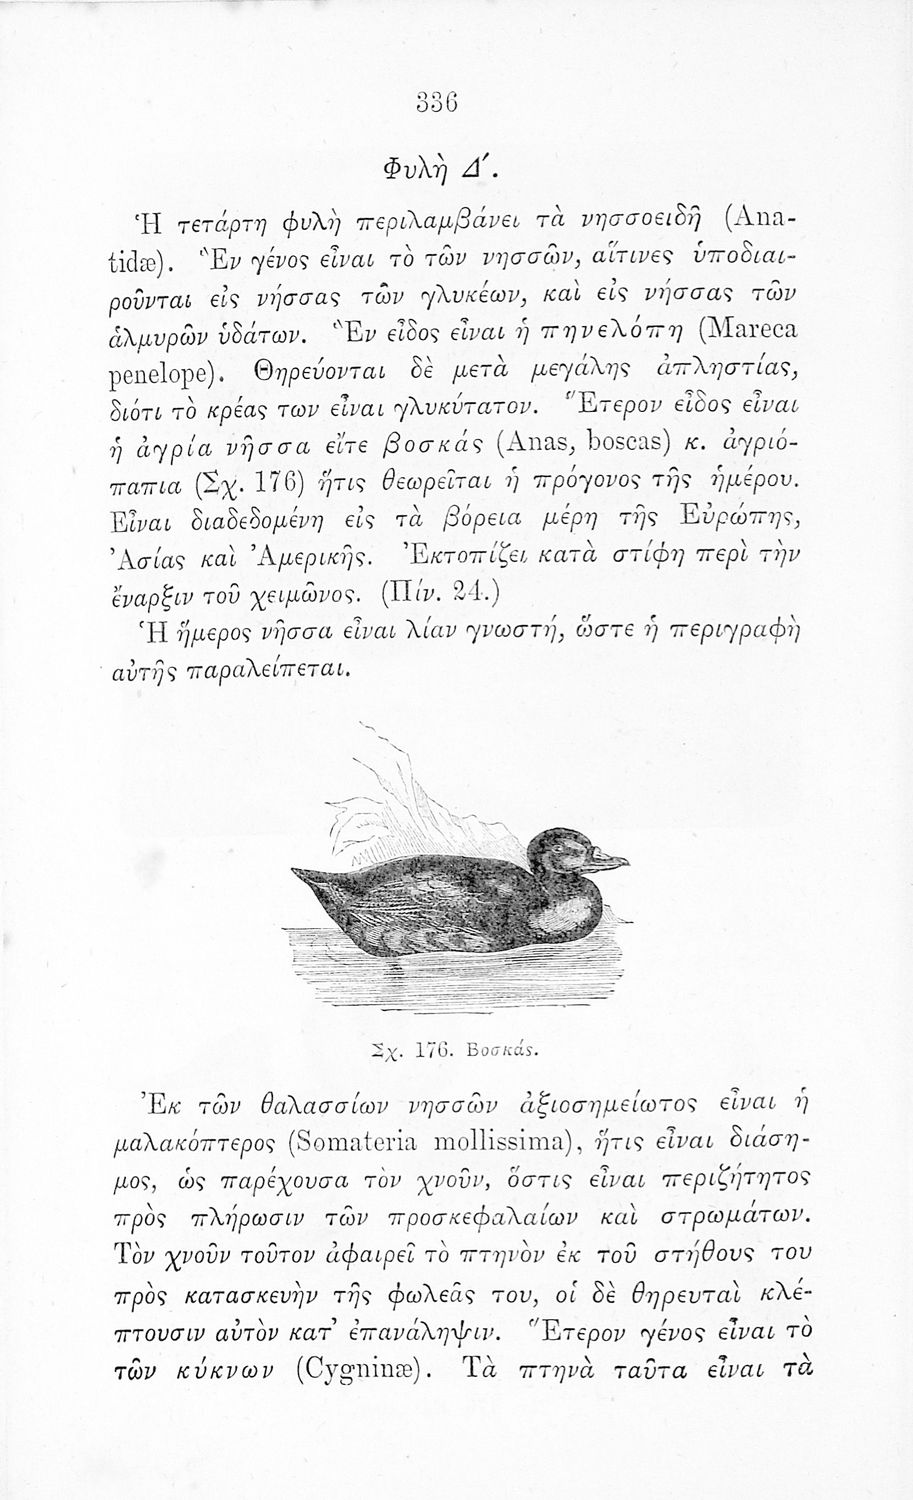 336
Φυλὴ Δ΄.
Ἡ τετάρτη φυλὴ περιλαμβάνει τὰ νησσοειδῆ (Ana-
tidæ). Ἓν γένος εἶναι τὸ τῶν νησσῶν, αἵτινες ὑποδιαι-
ροῦνται εἰς νήσσας τῶν γλυκέων, καὶ εἰς νήσσας τῶν
ἁλμυρῶν ὑδάτων. Ἓν εἶδος εἶναι ἡ πηνελόπη (Mareca
penelope). Θηρεύονται δὲ μετὰ μεγάλης ἀπληστίας,
διότι τὸ κρέας των εἶναι γλυκύτατον. Ἕτερον εἶδος εἶναι
ἡ ἀγρία νῆσσα εἴτε βοσκάς (Anas, boscas) κ. ἀγριό-
παπια (Σχ. 176) ἥτις θεωρεῖται ἡ πρόγονος τῆς ἡμέρου.
Εἶναι διαδεδομένη εἰς τὰ βόρεια μέρη τῆς Εὐρώπης,
Ἀσίας καὶ Ἀμερικῆς. Ἐκτοπίζει κατὰ στίφη περὶ τὴν
ἔναρξιν τοῦ χειμῶνος. (Πίν. 24.)
Ἡ ἥμερος νῆσσα εἶναι λίαν γνωστή, ὥστε ἡ περιγραφὴ
αὐτῆς παραλείπεται.
Σχ. 176. Βοσκάς.
Ἐκ τῶν θαλασσίων νησσῶν ἀξιοσημείωτος εἶναι ἡ
μαλακόπτερος (Somateria mollissima), ἥτις εἶναι διάση-
μος, ὡς παρέχουσα τὸν χνοῦν, ὅστις εἶναι περιζήτητος
πρὸς πλήρωσιν τῶν προσκεφαλαίων καὶ στρωμάτων.
Τὸν χνοῦν τοῦτον ἀφαιρεῖ τὸ πτηνὸν ἐκ τοῦ στήθους του
πρὸς κατασκευὴν τῆς φωλεᾶς του, οἱ δὲ θηρευταὶ κλέ-
πτουσιν αὐτὸν κατ᾽ ἐπανάληψιν. Ἕτερον γένος εἶναι τὸ
τῶν κύκνων (Cygninæ). Τὰ πτηνὰ ταῦτα εἶναι τὰ